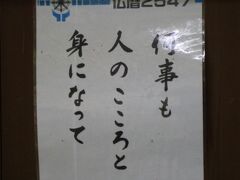 仏暦2547
何事も
人のこころと
身になって